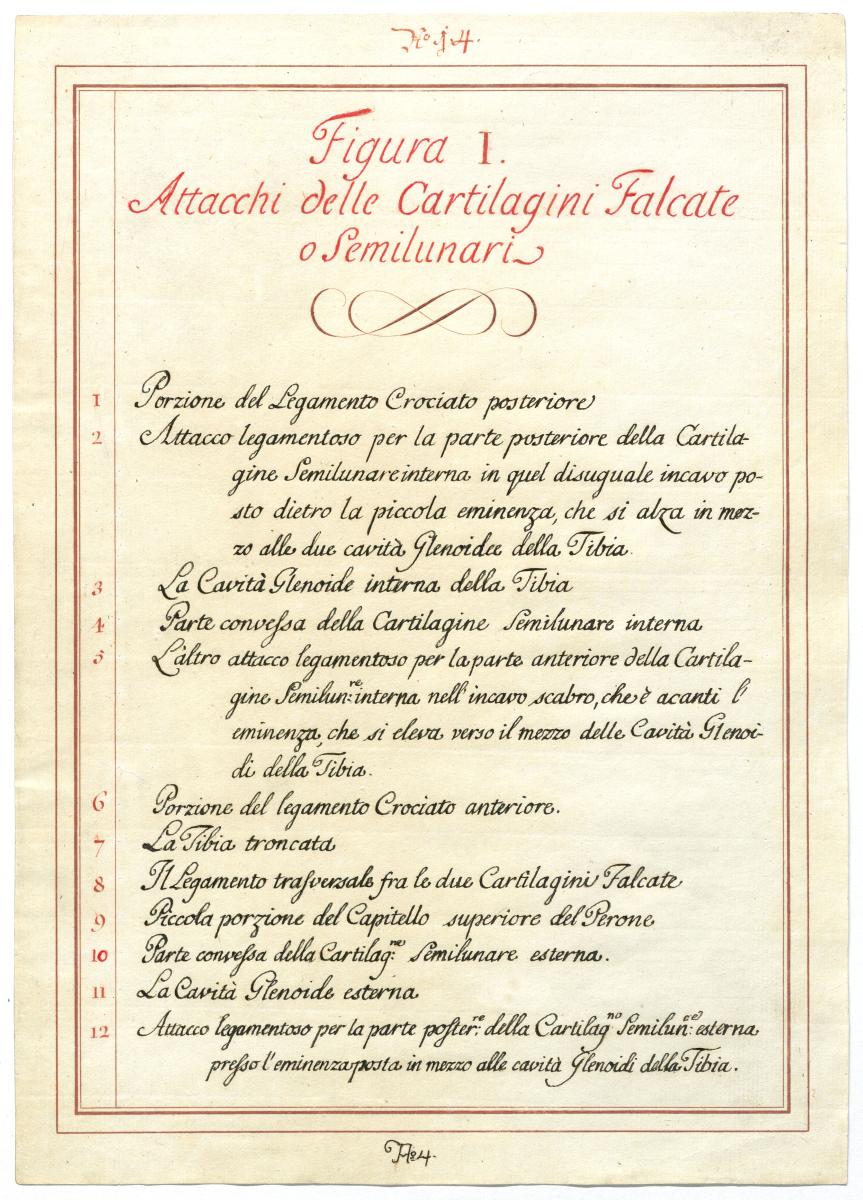 No. 14.
Figura I.
Attacchi delle Cartilagini Falcate
o Semilunari
1 Porzione del Legamento Crociato posteriore
2 Attacco legamentoso per la parte posteriore della Cartila-
gine Semilunare interna in quel disuguale incavo po-
sto dietro la piccola eminenza, che si alza in mez-
zo alle due cavità Glenoidee della Tibia
3 La Cavità Glenoide interna della Tibia
4 Parte convessa della Cartilagine Semilunare interna
5 L'altro attacco legamentoso per la parte anteriore della Cartila-
gine Semilun:re interna nell'incavo scabro, che è acanti l'
eminenza, che si eleva verso il mezzo delle Cavità Glenoi-
di della Tibia.
6 Porzione del legamento Crociato anteriore.
7 La Tibia troncata
8 Il Legamento trasversale fra le due Cartilagini Falcate
9 Piccola porzione del Capitello superiore del Perone
10 Parte convessa della Cartilag:ne Semilunare esterna.
11 La Cavità Glenoide esterna
12 Attacco legamentoso per la parte poster:re della Cartilag:no Semilun:ee esterna
presso l'eminenza posta in mezzo alle cavità Glenoidi della Tibia.